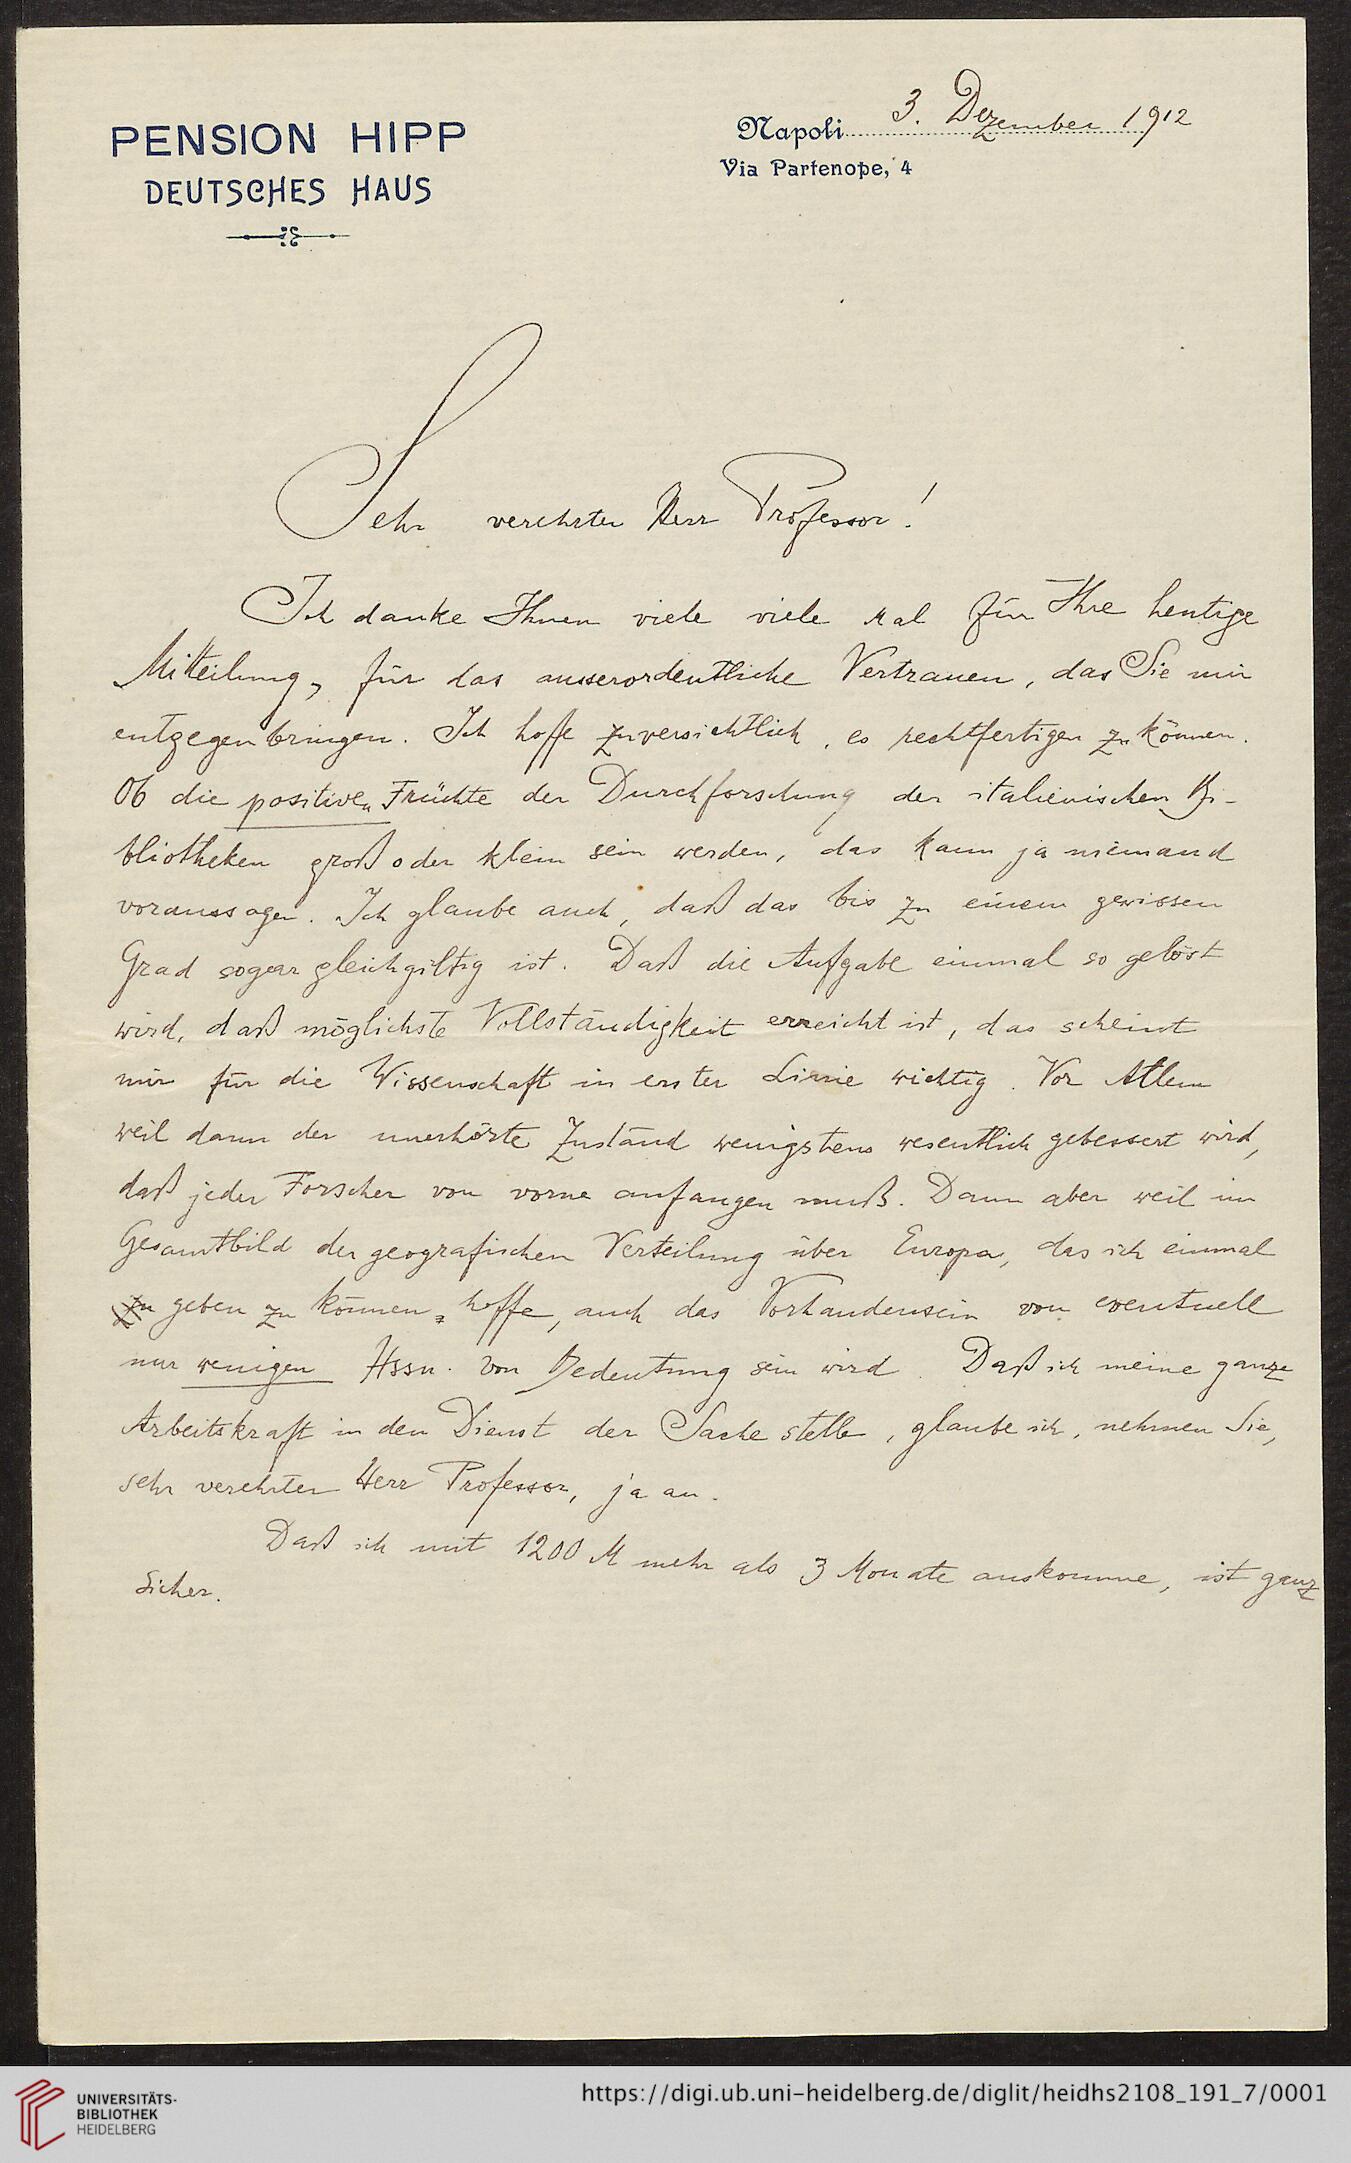 PENSION HIPP
DEUTSCHES HAUS
Napoli 3. Dezember 1912
Via Partenope, 4
Sehr verehrter Herr Professor!
Ich danke Ihnen viele viele Mal für Ihre heutige
Mitteilung, für das ausserordentliche Vertrauen, das Sie mir
entgegenbringen. Ich hoffe zuversichtlich, es rechtfertigen zu können.
Ob die positiven Früchte der Durchforschung der italienischen Bi-
bliotheken groß oder klein sein werden, das kann ja niemand
voraussagen. Ich glaube auch, daß das bis zu einem gewissen
Grad sogar gleichgiltig ist. Daß die Aufgabe einmal so gelöst
wird, daß möglichste Vollständigkeit erreicht ist, das scheint
mir für die Wissenschaft in erster Linie wichtig. Vor Allem
weil dann der unerhörte Zustand wenigstens wesentlich gebessert wird,
daß jeder Forscher von vorne anfangen muß. Dann aber weil im
Gesamtbild der geografischen Verteilung über Europa, das ich einmal
zu geben zu können hoffe, auch das Vorhandensein von eventuell
nur wenigen Hssn. von Bedeutung sein wird. Daß ich meine ganze
Arbeitskraft in den Dienst der Sache stelle, glaube ich, nehmen Sie,
sehr verehrter Herr Professor, ja an.
Daß ich mit 1200 M mehr als 3 Monate auskomme, ist ganz
sicher.
UNIVERSITÄTS-
BIBLIOTHEK
HEIDELBERG
https://digi.ub.uni-heidelberg.de/diglit/heidhs2108_191_7/0001